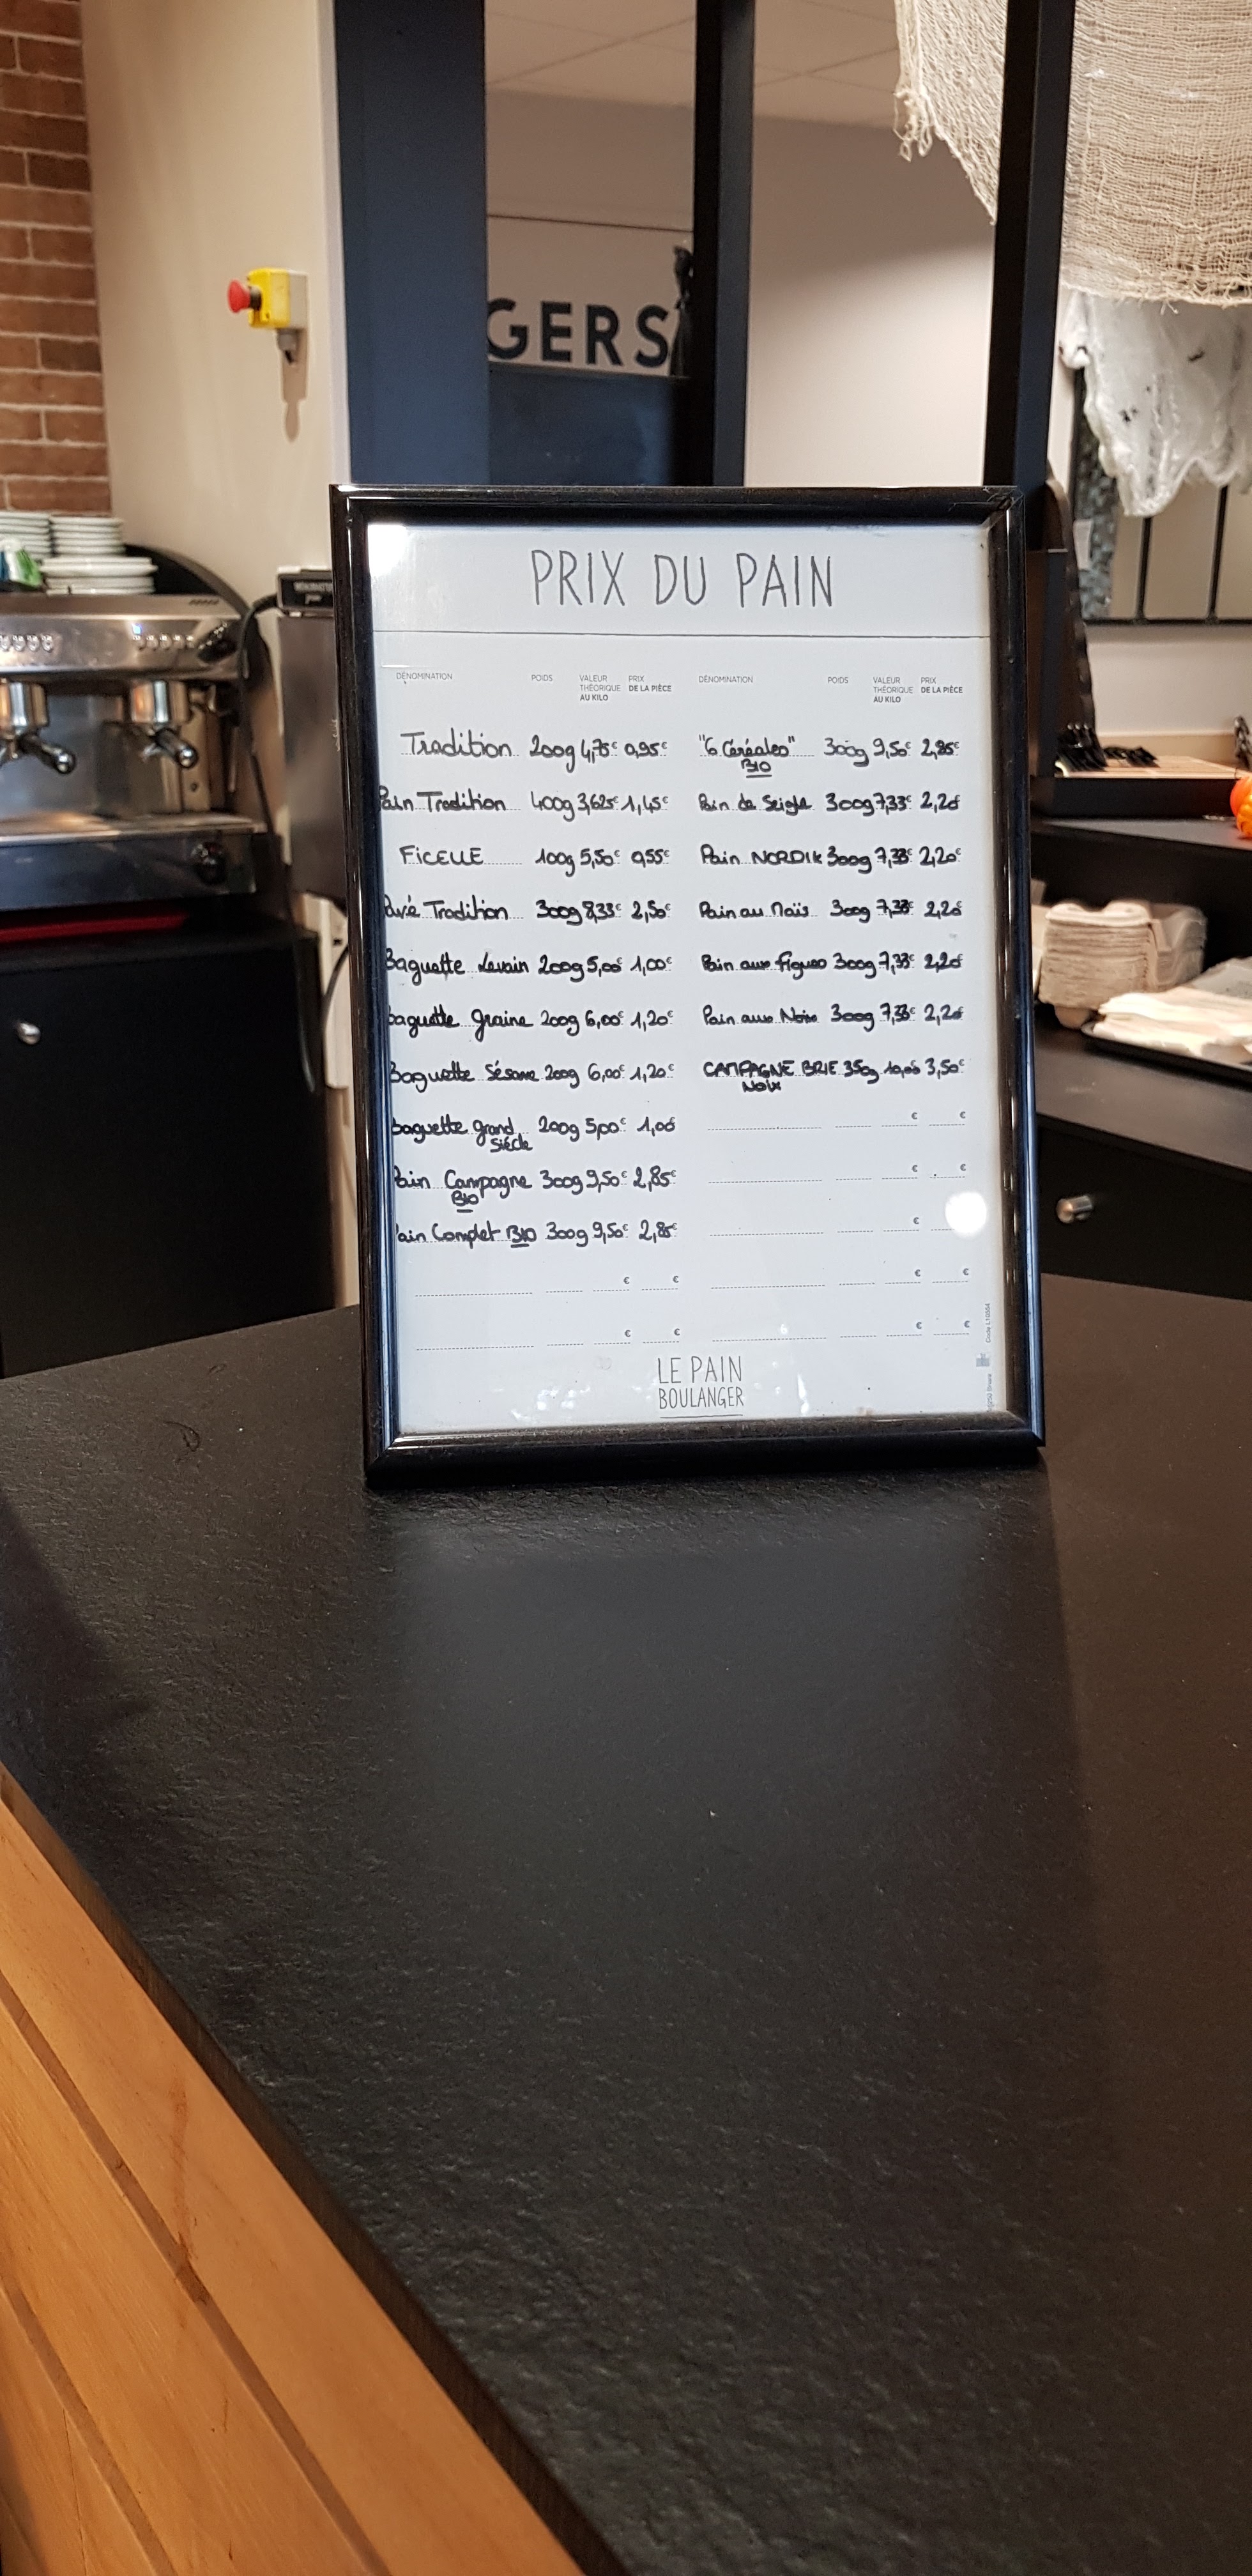 GERS
PRIX DU PAIN
DÉNOMINATION POIDS VALEUR THÉORIQUE AU KILO PRIX DE LA PIÈCE
Tradition 200g 4,75€ 0,95€
Pain Tradition 400g 3,625€ 1,45€
FICELLE 100g 5,50€ 0,55€
Pavé Tradition 300g 8,33€ 2,50€
Baguette Levain 200g 5,00€ 1,00€
Baguette graine 200g 6,00€ 1,20€
Baguette Sésame 200g 6,00€ 1,20€
Baguette grand Siècle 200g 5,00€ 1,00€
Pain Campagne BIO 300g 9,50€ 2,85€
Pain Complet BIO 300g 9,50€ 2,85€
€ €
€ €
DÉNOMINATION POIDS VALEUR THÉORIQUE AU KILO PRIX DE LA PIÈCE
"6 Céréales" BIO 300g 9,50€ 2,85€
Pain de Seigle 300g 7,33€ 2,20€
Pain NORDIK 300g 7,33€ 2,20€
Pain au Maïs 300g 7,33€ 2,20€
Pain aux Figues 300g 7,33€ 2,20€
Pain aux Noix 300g 7,33€ 2,20€
CAMPAGNE BRIE NOIX 350g 10,00€ 3,50€
€ €
€ €
€
€ €
€ €
LE PAIN
BOULANGER